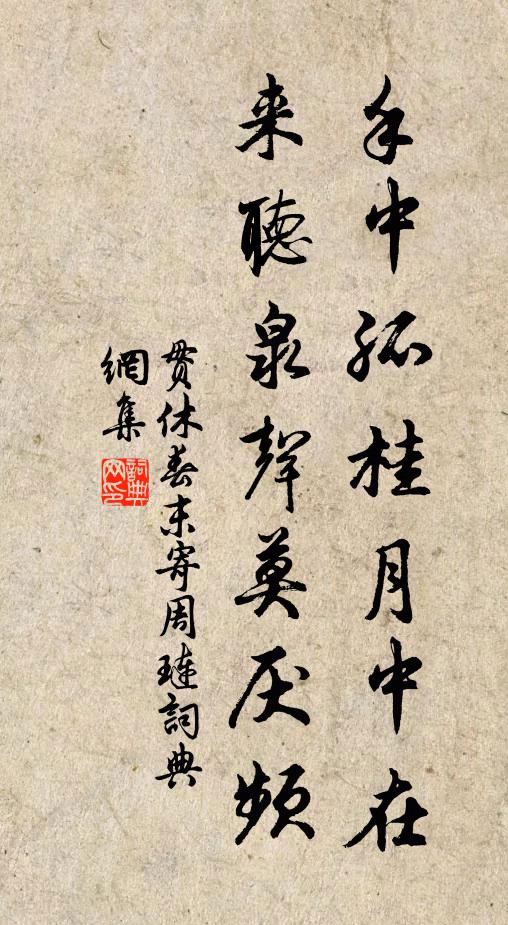 手中孤桂月中在
来聽泉聲莫厌頻
贯休春末寄周璉詞典
網集
詞典網印